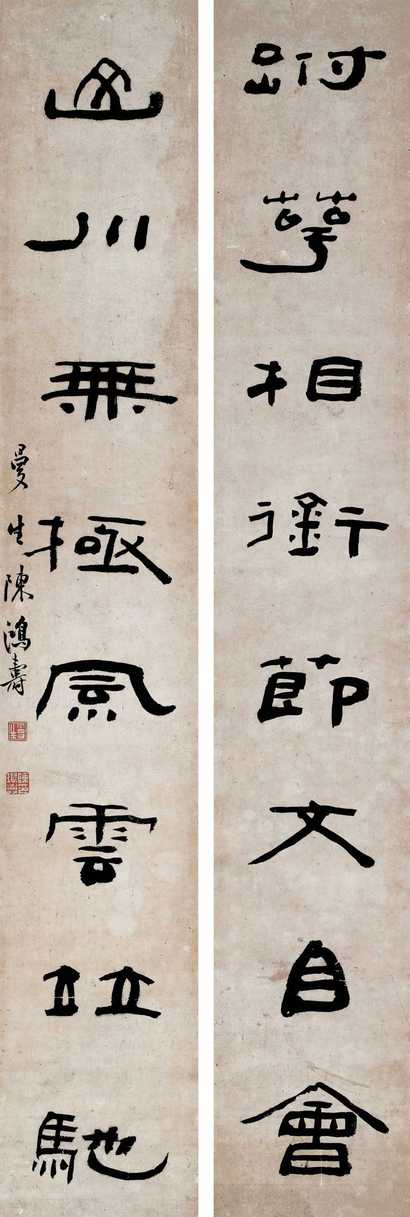 跗萼相銜節文自會
山川無極風雲竝馳
曼生陳鴻壽